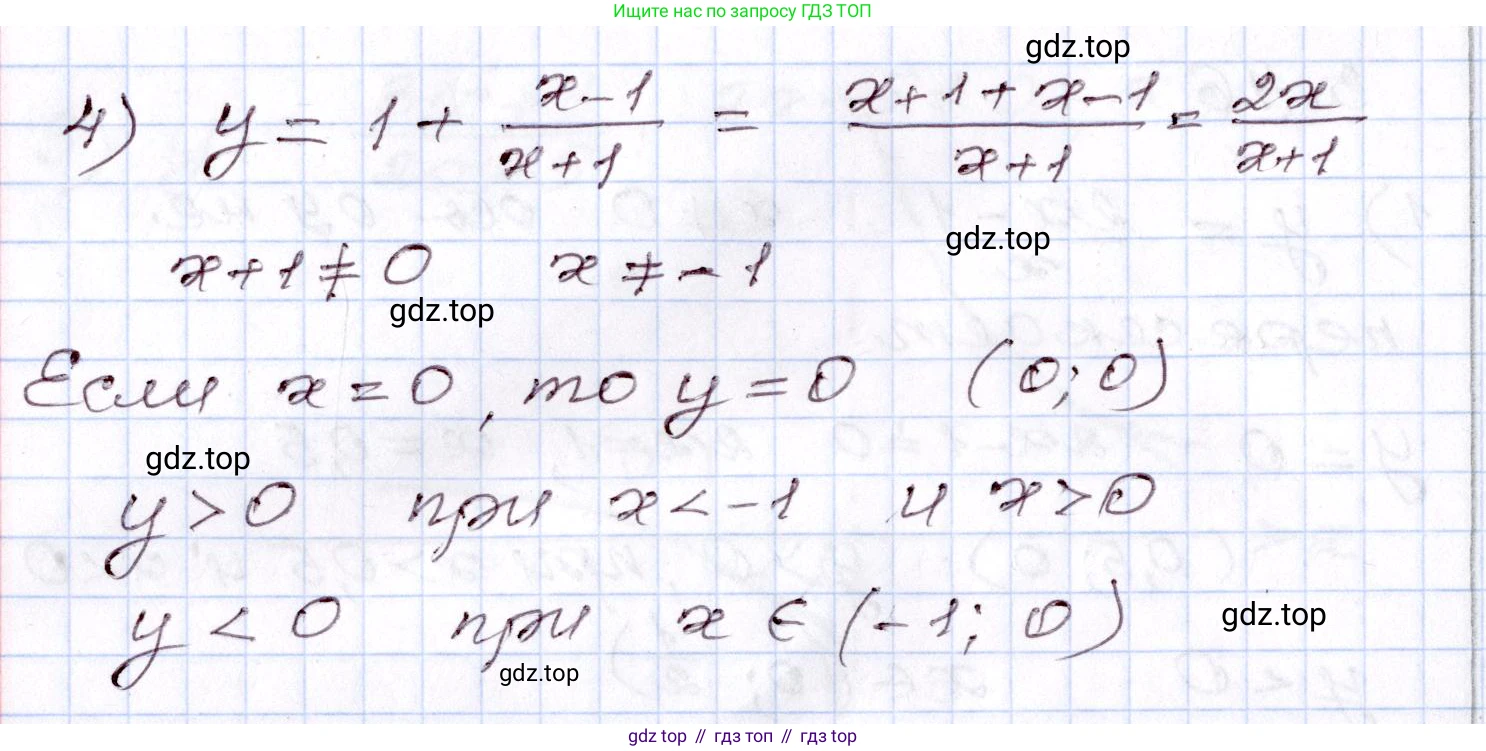 Ищите нас по запросу ГДЗ ТОП
gdz.top
4) y = 1 + (x-1)/(x+1) = (x+1+x-1)/(x+1) = 2x/(x+1)
x+1≠0 x≠-1
gdz.top
gdz.top
Если x=0, то y=0 (0;0)
gdz.top
y>0 при x<-1 и x>0
y<0 при x∈(-1; 0)
gdz.top
gdz.top
gdz top // гдз топ // гдз top